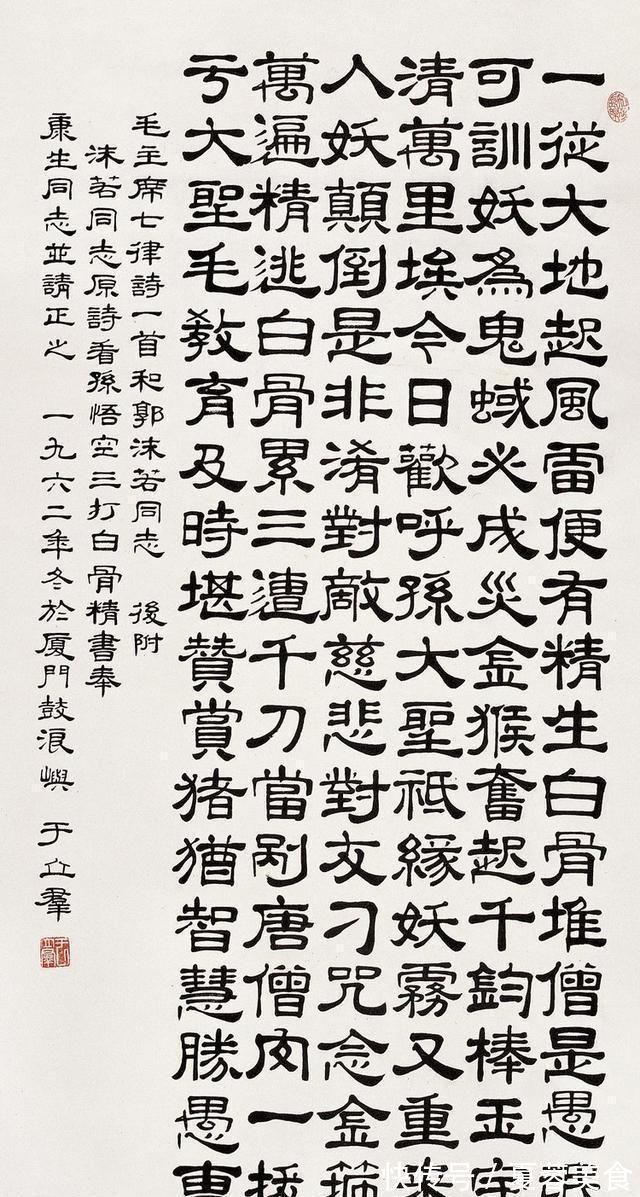 一從大地起風雷便有精生白骨堆僧是愚
可訓妖爲鬼蜮必成災金猴奮起千鈞棒玉宇
清萬里埃今日歡呼孫大聖祗緣妖霧又重來
人妖顛倒是非淆對敵慈悲對友刁咒念金箍
萬遍精逃白骨累三遭千刀當剮唐僧肉一拔
亏大聖毛教育及時堪贊賞猪猶智慧勝愚曹
毛主席七律詩一首和郭沫若同志 後附
沫若同志原詩看孫悟空三打白骨精書奉
康生同志並請正之 一九六二年冬於厦門鼓浪嶼 于立羣
于立羣
快传号/夏蓉美食